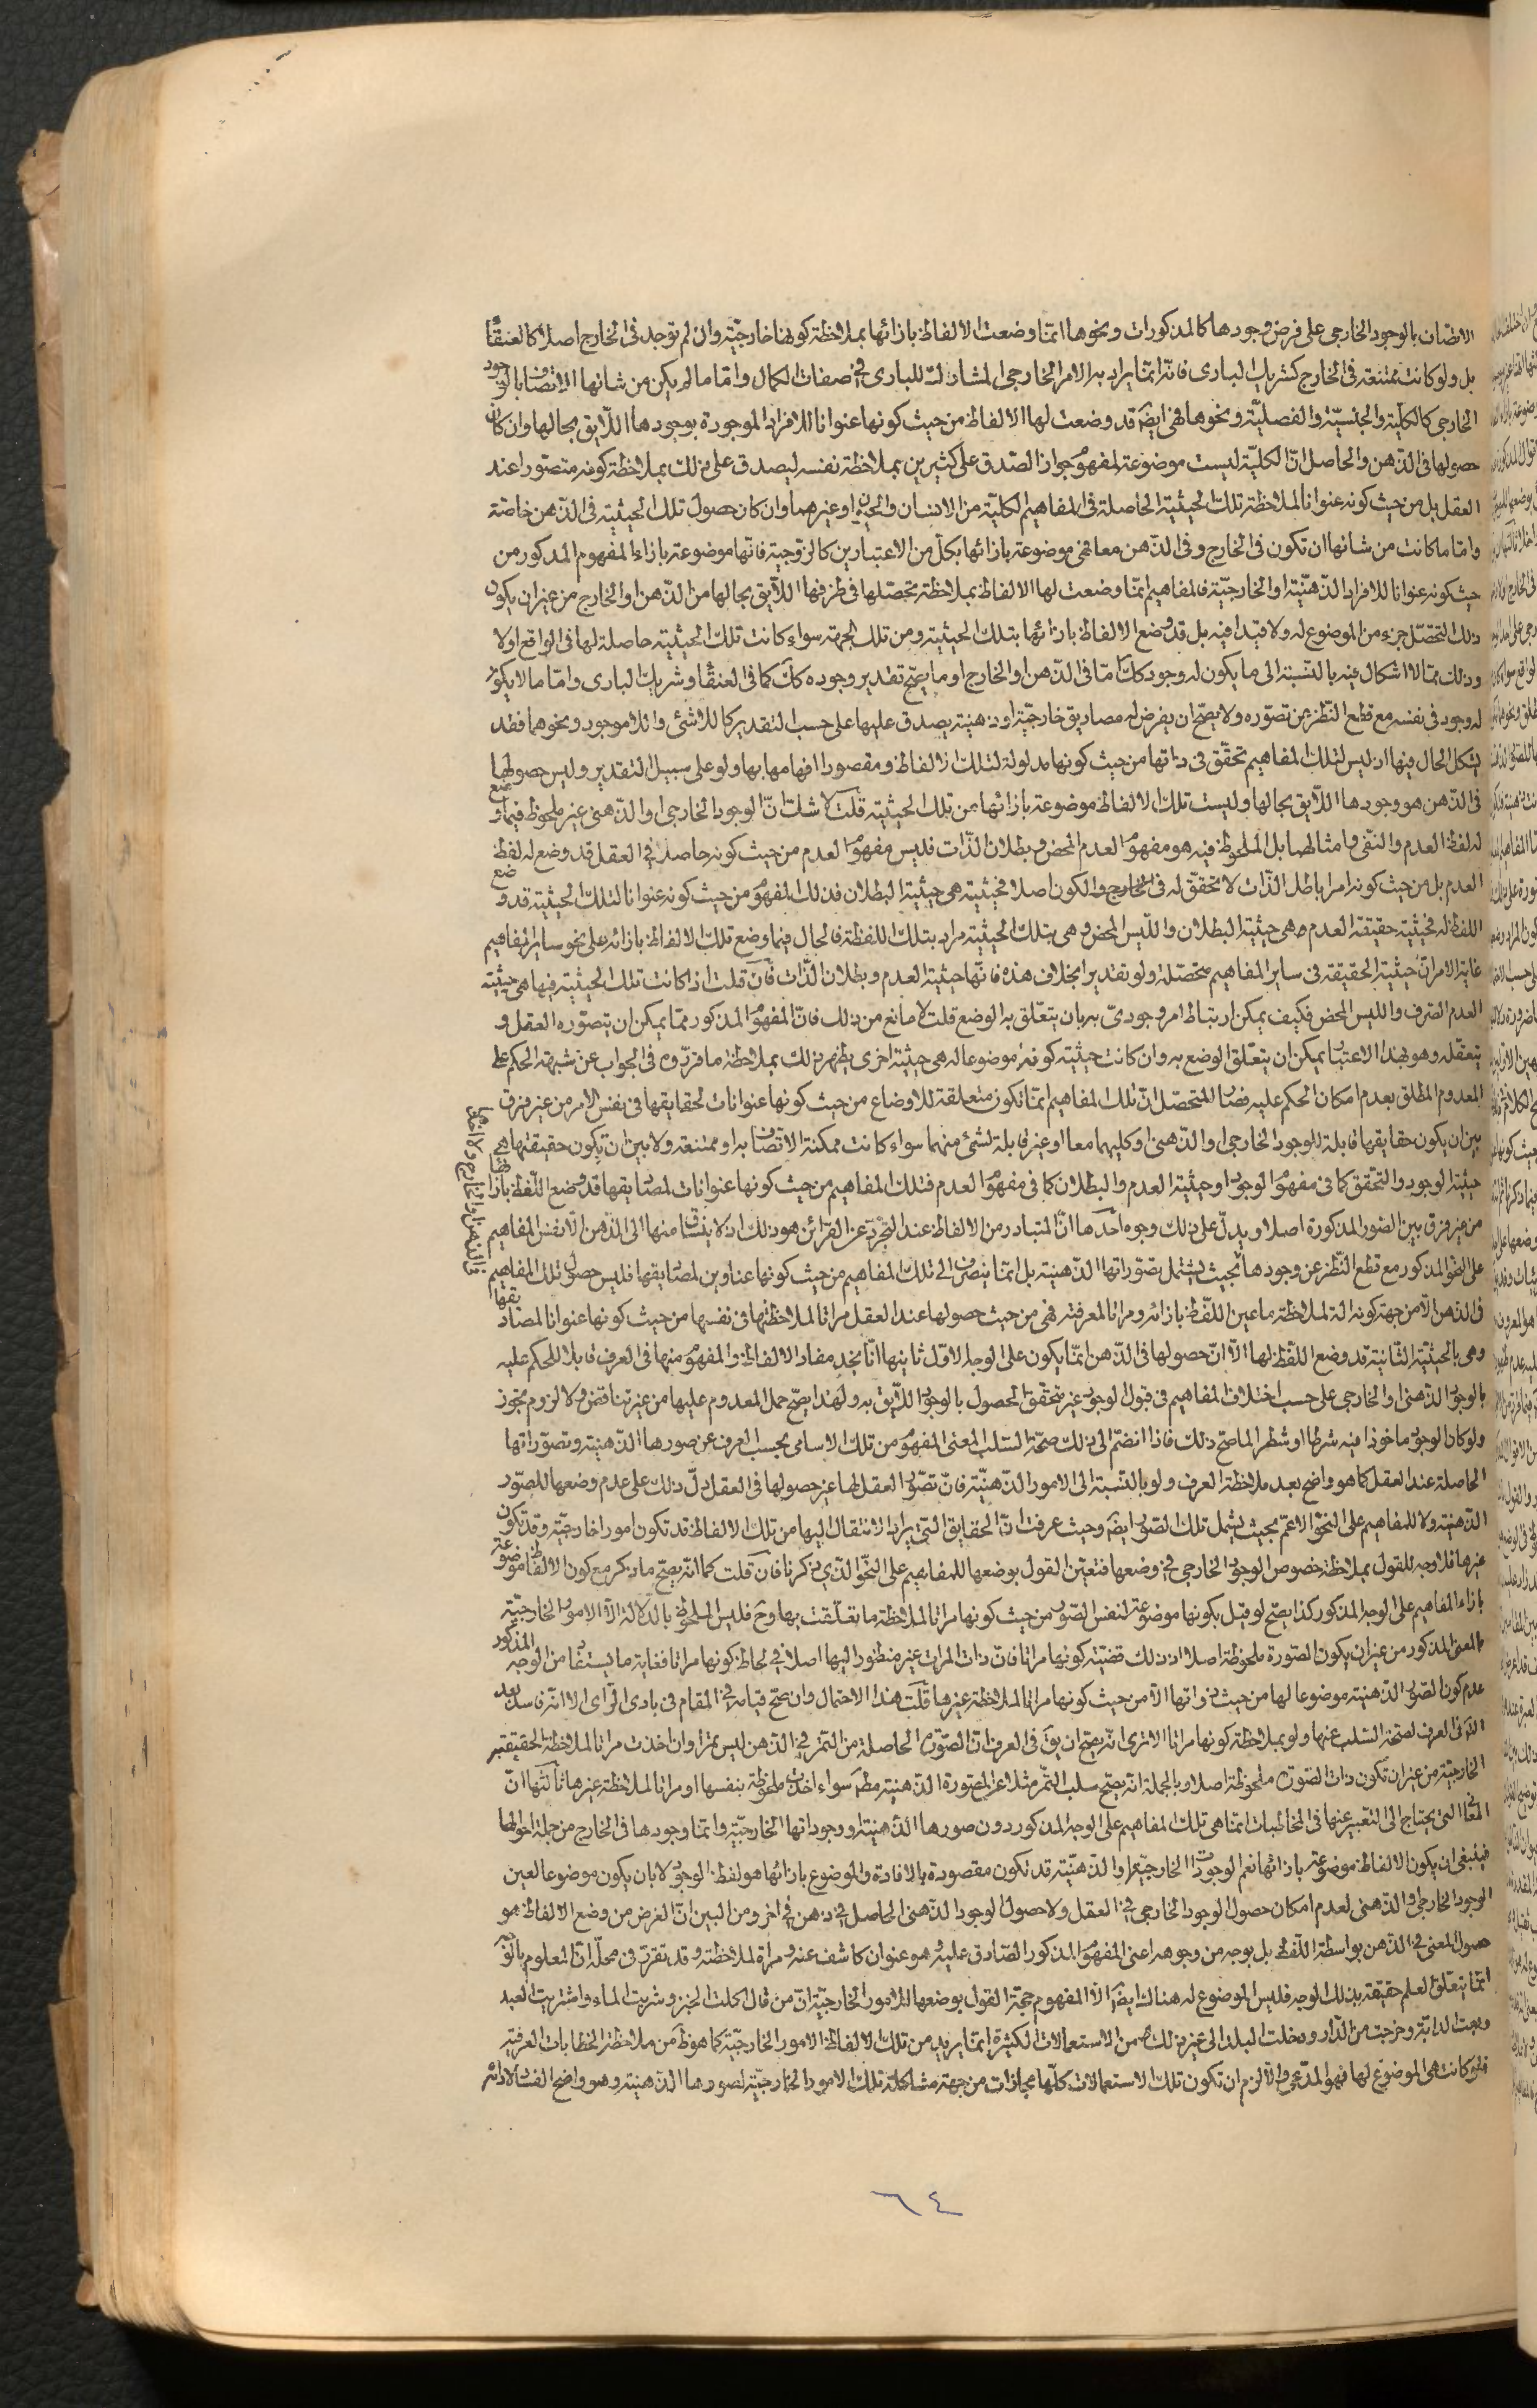 الاتصاف بالوجود الخارجى على فرض وجودها كالمذكورات ونحوها انما وضعت الالفاظ بازائها بملاحظة كونها خارجية وان لم توجد فى الخارج اصلا كالعنقاء
بل ولو كانت ممتنعة فى الخارج كشريك البارى فانه انما يراد به الامر الخارجى المشارك للبارى فى صفات الكمال واما ما لم يكن من شانها الاتصاف بالوجود
الخارجى كالكلية والجنسية والفصلية ونحوها فهى ايضا قد وضعت لها الالفاظ من حيث كونها عنوانا للافراد الموجودة بوجودها اللايق بحالها وان كان
حصولها فى الذهن والحاصل ان الكلية ليست موضوعة لمفهوم جواز الصدق على كثيرين بملاحظة نفسه ليصدق على ذلك بملاحظة كونه متصورا عند
العقل بل من حيث كونه عنوانا لملاحظة تلك الحيثية الحاصلة فى المفاهيم الكلية من الانسان والحيوان او غيرهما وان كان حصول تلك الحيثية فى الذهن خاصة
واما ما كانت من شانها ان تكون فى الخارج وفى الذهن معا فهى موضوعة بازائها بكل من الاعتبارين كالزوجية فانها موضوعة بازاء المفهوم المذكور من
حيث كونه عنوانا للافراد الذهنية او الخارجية فالمفاهيم انما وضعت لها الالفاظ بملاحظة تحصلها فى ظرفها اللايق بحالها من الذهن او الخارج من غير ان يكون
ذلك التحصل جزء من الموضوع له ولا قيدا فيه بل قد وضع الالفاظ بازائها بتلك الحيثية ومن تلك الجهة سواء كانت تلك الحيثية حاصلة لها فى الواقع اولا
وذلك مما لا اشكال فيه بالنسبة الى ما يكون له وجود كك اما فى الذهن او الخارج او ما يصح تقدير وجوده كك كما فى العنقا وشريك البارى واما ما لا يكون
له وجود فى نفسه مع قطع النظر عن تصوره ولا يصح ان يفرض له مصاديق خارجية او ذهنية يصدق عليها على حسب التقدير كاللاشئى واللاموجود ونحوهما فقد
يشكل الحال فيها اذ ليس لتلك المفاهيم تحقق فى ذاتها من حيث كونها مدلولة لتلك الالفاظ ومقصودا افهامها بها ولو على سبيل التقدير وليس حصولها
فى الذهن هو وجودها اللايق بحالها وليست تلك الالفاظ موضوعة بازائها من تلك الحيثية قلت لا شك ان الوجود الخارجى او الذهنى غير ملحوظ فيما وضع
له لفظ العدم والنفى وامثالهما بل الملحوظ فيه هو مفهوم العدم المحض وبطلان الذات فليس مفهوم العدم من حيث كونه حاصلا فى العقل قد وضع له لفظ
العدم بل من حيث كونه امرا باطل الذات لا تحقق له فى الخارج والكون اصلا فحيثيته هى حيثية البطلان فذلك المفهوم من حيث كونه عنوانا لتلك الحيثية قد وضع
اللفظ له فحيثية حقيقة العدم هى حيثية البطلان والليس المحض وهى بتلك الحيثية مراد بتلك اللفظة فالحال فيما وضع تلك الالفاظ بازائه على نحو ساير المفاهيم
غاية الامر ان حيثية الحقيقة فى ساير المفاهيم متحصلة ولو تقديرا بخلاف هذه فانها حيثية العدم وبطلان الذات فان قلت اذا كانت تلك الحيثية فيها هى حيثية
العدم الصرف والليس المحض فكيف يمكن ارتباط امر وجودى به بان يتعلق به الوضع قلت لا مانع من ذلك فان المفهوم المذكور مما يمكن ان يتصوره العقل و
يتعقله وهو بهذا الاعتبار يمكن ان يتعلق الوضع به وان كانت حيثية كونه موضوعا له هى حيثية اخرى يظهر ذلك بملاحظة ما قرروه فى الجواب عن شبهة الحكم على
المعدوم المطلق بعدم امكان الحكم عليه فصار المتحصل ان تلك المفاهيم انما تكون متعلقة للاوضاع من حيث كونها عنوانات لحقايقها فى نفس الامر من غير فرق
بين ان يكون حقايقها قابلة للوجود الخارجى او الذهنى او كليهما معا او غير قابلة لشئ منهما سواء كانت ممكنة الاتصاف به او ممتنعة ولا بين ان يكون حقيقتها هى
حيثية الوجود والتحقق كما فى مفهوم الوجود او حيثية العدم والبطلان كما فى مفهوم العدم فتلك المفاهيم من حيث كونها عنوانات لمصاديقها قد وضع اللفظ بازائها
من غير فرق بين الصور المذكورة اصلا ويدل على ذلك وجوه احدها ان المتبادر من الالفاظ عند التجرد عن القرائن هو ذلك اذ لا ينساق منها الى الذهن الا نفس المفاهيم
على النحو المذكور مع قطع النظر عن وجودها بحيث يشمل تصوراتها الذهنية بل انما ينصرف الى تلك المفاهيم من حيث كونها عناوين لمصاديقها فليس حصول تلك المفاهيم
فى الذهن الا من جهة كونه الة لملاحظة ما عين اللفظ بازائه ومراتا لمعرفته فهى من حيث حصولها عند العقل مراتا لملاحظتها فى نفسها من حيث كونها عنوانا لمصاديقها
وهى بالحيثية الثانية قد وضع اللفظ لها الا ان حصولها فى الذهن انما يكون على الوجه الاول ثانيها انا نجد مفاد الالفاظ والمفهوم منها فى العرف قابلا للحكم عليه
بالوجود الذهنى او الخارجى على حسب اختلاف المفاهيم فى قبول الوجود غير متحقق الحصول بالوجود اللايق به ولهذا يصح حمل المعدوم عليها من غير تناقض ولا لزوم تجوز
ولو كان الوجود ماخوذا فيه شرطا او شطرا لما صح ذلك فاذا انضم الى ذلك صحة السلب المعنى المفهوم من تلك الاسامى بحسب العرف عن صورها الذهنية وتصوراتها
الحاصلة عند العقل كما هو واضح بعد ملاحظة العرف ولو بالنسبة الى الامور الذهنية فان تصور العقل لها غير حصولها فى العقل دل ذلك على عدم وضعها للصور
الذهنية ولا للمفاهيم على النحو الاعم بحيث يشمل تلك الصور ايضا وحيث عرفت ان الحقايق التى يراد الانتقال اليها من تلك الالفاظ قد تكون امورا خارجية وقد تكون
غيرها فلا وجه للقول بملاحظة خصوص الوجود الخارجى فى وضعها فتعين القول بوضعها للمفاهيم على النحو الذى ذكرنا فان قلت كما انه يصح ما ذكر مع كون الالفاظ موضوعة
بازاء المفاهيم على الوجه المذكور كذا يصح لو قيل بكونها موضوعة لنفس الصور من حيث كونها مراتا لملاحظة ما تعلقت بها وح فليس الملحوظ بالدلالة الا الامور الخارجية
بالمعنى المذكور من غير ان يكون الصورة ملحوظة اصلا اذ ذلك قضية كونها مراتا فان ذات المرات غير منظور اليها اصلا فى لحاظ كونها مراتا فغاية ما يستفاد من الوجه المذكور
عدم كون الصور الذهنية موضوعا لها من حيث ذواتها الا من حيث كونها مراتا لملاحظة غيرها قلت هذا الاحتمال وان صح قيامه فى المقام فى بادى الراى الا انه فاسد بعد
التامل فى العرف لصحة السلب عنها ولو بملاحظة كونها مراتا الا ترى انه يصح ان يق فى العرف ان الصورة الحاصلة من التمر فى الذهن ليس تمرا وان اخذت مراتا لملاحظة الحقيقة
الخارجية من غير ان تكون ذات الصورة ملحوظة اصلا وبالجملة انه يصح سلب التمر مثلا عن الصورة الذهنية مطم سواء اخذت ملحوظة بنفسها او مراتا لملاحظة غيرها ثالثها ان
المعانى التى يحتاج الى التعبير عنها فى المخاطبات انما هى تلك المفاهيم على الوجه المذكور دون صورها الذهنية ووجوداتها الخارجية وانما وجودها فى الخارج من جملة احوالها
فينبغى ان يكون الالفاظ موضوعة بازائها نعم الوجودات الخارجية او الذهنية قد تكون مقصودة بالافادة والموضوع بازائها هو لفظ الوجود لا بان يكون موضوعا لعين
الوجود الخارجى او الذهنى لعدم امكان حصول الوجود الخارجى فى العقل ولا حصول الوجود الذهنى الحاصل فى ذهن فى اخر ومن البين ان الغرض من وضع الالفاظ هو
حصول المعنى فى الذهن بواسطة اللفظ بل بوجه من وجوهه اعنى المفهوم المذكور الصادق عليه وهو عنوان كاشف عنه ومراة لملاحظته وقد تقرر فى محله ان المعلوم بالوجه
انما يتعلق العلم حقيقة بذلك الوجه فليس الموضوع له هناك ايضا الا المفهوم حجة القول بوضعها للامور الخارجية ان من قال اكلت الخبز وشربت الماء واشتريت العبد
وبعت الدابة وخرجت من الدار ودخلت البلد الى غير ذلك من الاستعمالات الكثيرة انما يريد من تلك الالفاظ الامور الخارجية كما هو ظ من ملاحظة الخطابات العرفية
فلو كانت هى الموضوع لها فهو المدعى والا لزم ان تكون تلك الاستعمالات كلها مجازات من جهة مشاكلة تلك الامور الخارجية لصورها الذهنية وهو واضح الفساد لادائه
٦٤